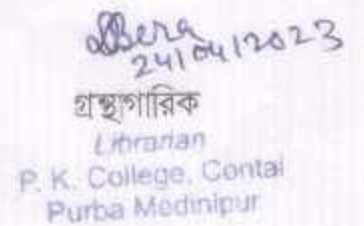 Bera
24/04/2023
গ্রন্থাগারিক
Librarian
P. K. College, Contai
Purba Medinipur